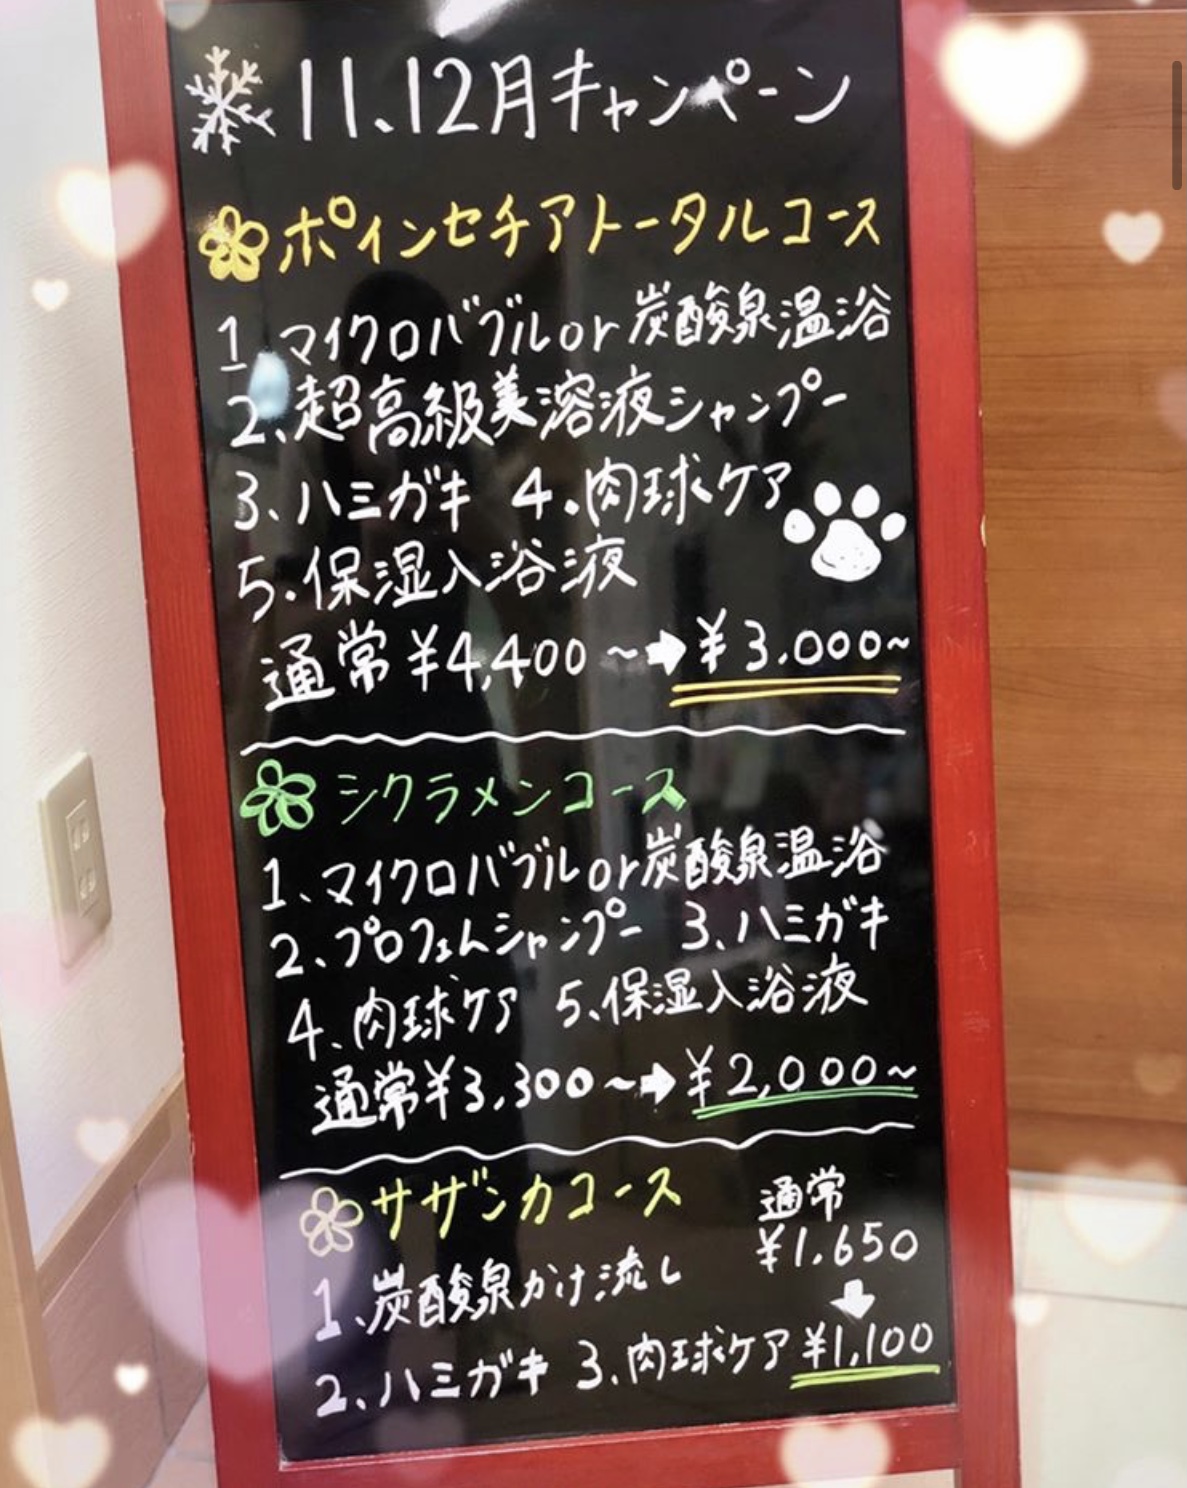 11、12月キャンペーン
ポインセチアトータルコース
1、マイクロバブルor炭酸泉温浴
2、超高級美溶液シャンプー
3、ハミガキ 4.肉球ケア
5.保湿入浴液
通常¥4,400~➡¥3,000~
シクラメンコース
1、マイクロバブルor炭酸泉温浴
2、プロフェムシャンプー 3、ハミガキ
4、肉球ケア 5、保湿入浴液
通常¥3,300~➡¥2,000~
サザンカコース
通常
¥1,650
⬇
1、炭酸泉かけ流し
2、ハミガキ 3.肉球ケア ¥1,100